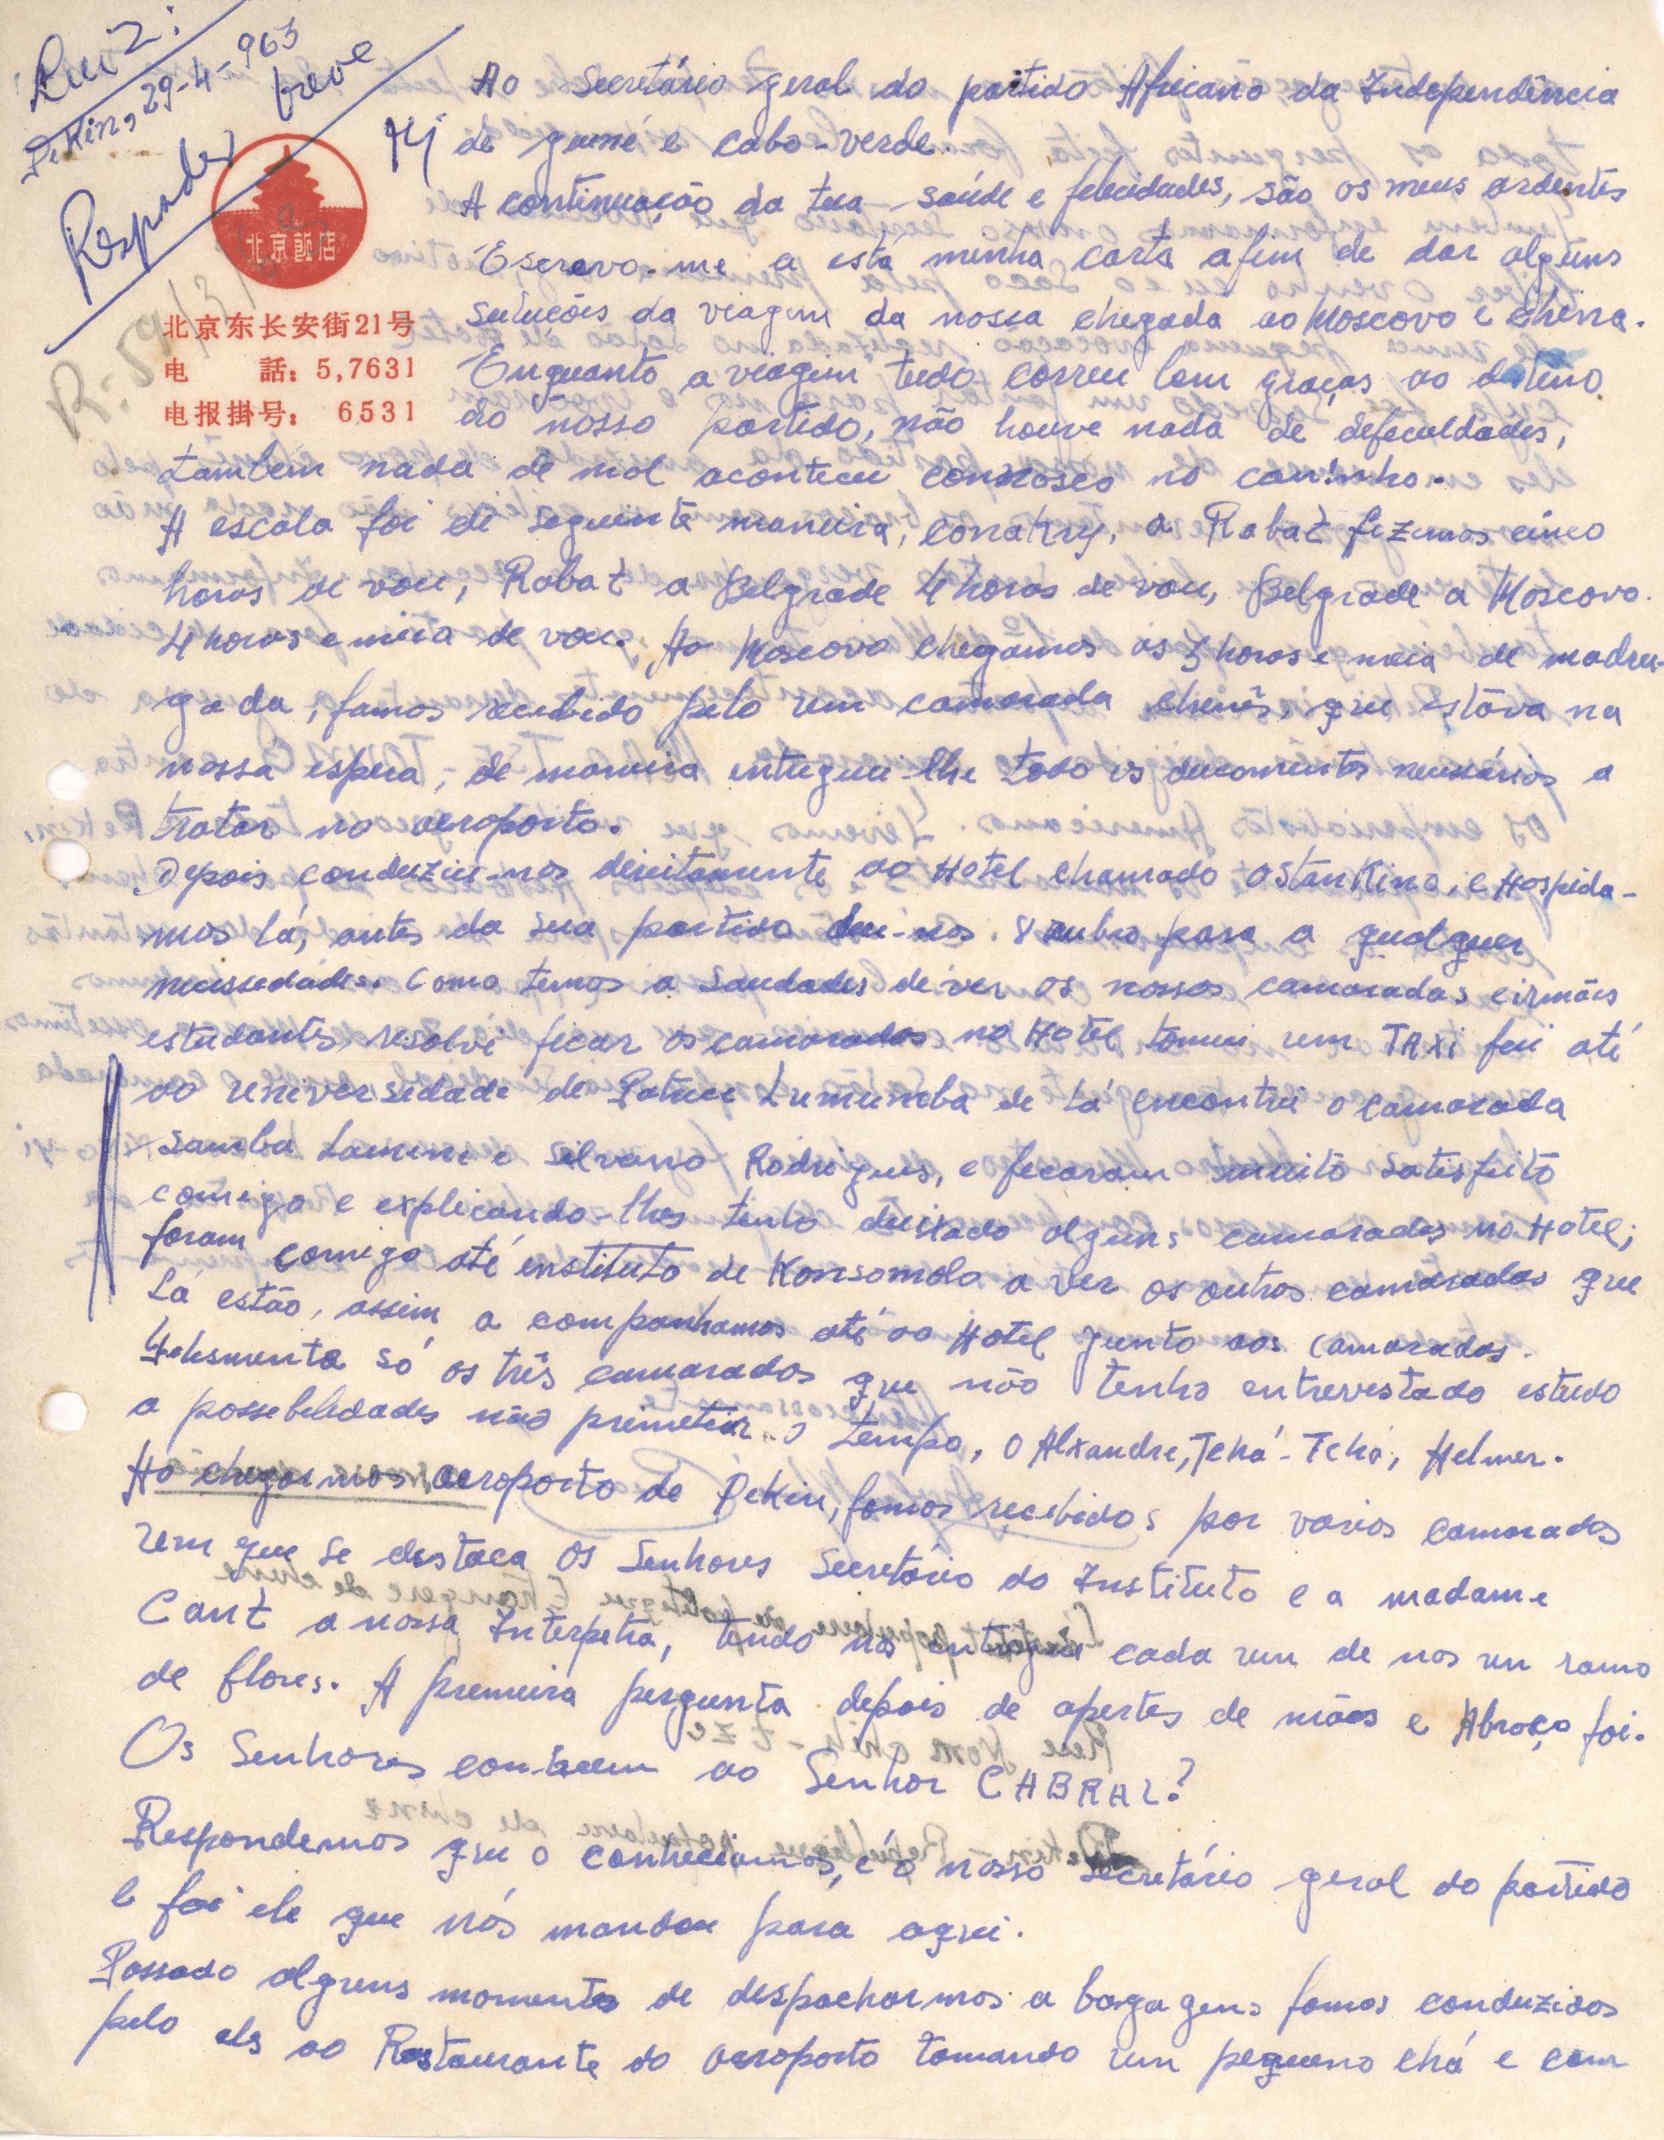 Luiz:
Pekin, 29-4-963
Responder breve
北京飯店
北京东长安街21号
电 話: 5,7631
电报掛号: 6531
Ao Secretário geral do partido Africano da Independência
de guiné e cabo-verde.
A continuação da tua saúde e felecidades, são os meus ardentes
Escrevo-me a está minha carta afim de dar alguns
soluções da viagem da nossa chegada ao Moscovo e China.
Enquanto a viagem tudo correu bem graças ao
do nosso partido, não houve nada de defeculdades,
tambem nada de mal aconteceu connosco no caminho.
A escala foi de seguinte maneira, Conakry, a Rabat fizemos cinco
horas de vou, Rabat a Belgrade 4 horas de vou, Belgrade a Moscovo
4 horas e meia de vou. Ao Moscovo chegámos ás 3 horas e meia de madru-
gada, fomos recebido pelo um camarada chinês, que estáva na
nossa espera, de maneira entreguei-lhe todo os documentos necessários a
tratar no aeroporto.
Depois conduziu-nos direitamente ao Hotel chamado Ostankino, e Hospida-
mos lá, antes da sua partida deu-nos. 8 rublos para a qualquer
necessedades. Como temos a saudades de ver os nossos camaradas e irmãos
estudantes, resolvi ficar os camaradas no Hotel tomei um TAXI fui até
ao universidade de Patrice Lumumba de lá encontrei o camarada
Samba Lamine e Silvano Rodrigues, e fecaram muito satisfeito
comigo e explicando-lhes tenho deixado alguns camaradas no Hotel;
foram comigo até enstituto de Konsomola a ver os outros camaradas que
lá estão, assim a companhamos até ao Hotel junto aos camaradas.
só os três camaradas que não tenho entrevestado estudo
a possebeledades não o tempo, o Alxandre, Tchá-Tchá, Helmer.
Ao chegarmos aeroporto de Pekin, fomos recebidos por varios camarados
um que se destaca os Senhores Secretário do Instituto e a madame
Cant a nossa Interpetra, tendo nos entregue cada um de nos un ramo
de flores. A premeira pergunta depois de apertes de mãos e Abraço foi.
Os Senhores conhecem ao Senhor CABRAL?
Respondemos que o conheciamos, é o nosso secretário geral do partido
e foi ele que nós mandou para aqui.
Passado alguns momentos de despacharmos a bagagens fomos conduzidos
pelo els ao Restaurante do aeroporto tomando um pequeno chá e com